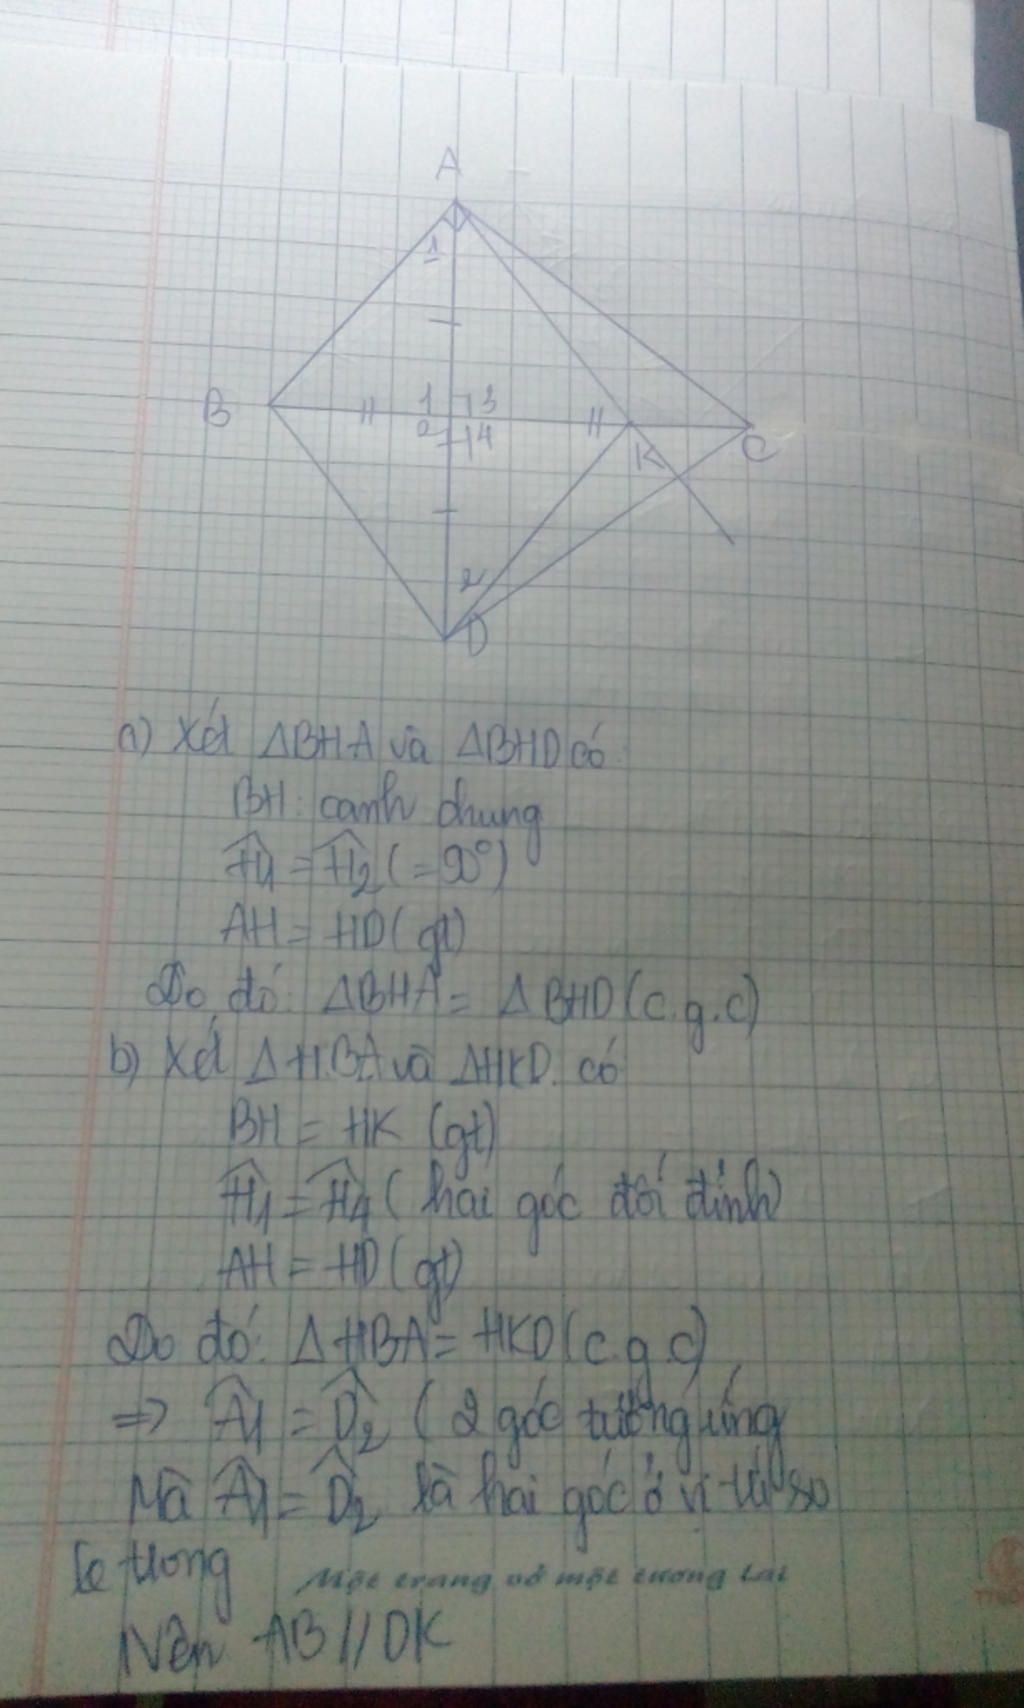 A
1
B
1
3
2
4
K
C
2
D
a) Xét ΔBHA và ΔBHD có
BH: cạnh chung
Ĥ1 = Ĥ2 (= 90°)
AH = HD (gt)
Do đó: ΔBHA = ΔBHD (c.g.c)
b) Xét ΔHBA và ΔHKD có
BH = HK (gt)
Ĥ1 = Ĥ4 (hai góc đối đỉnh)
AH = HD (gt)
Do đó: ΔHBA = HKD (c.g.c)
=> Â1 = D̂2 (2 góc tương ứng
Mà Â1 = D̂2 là hai góc ở vị trí so
le trong
Một trang vở một tương lai
Nên AB // DK